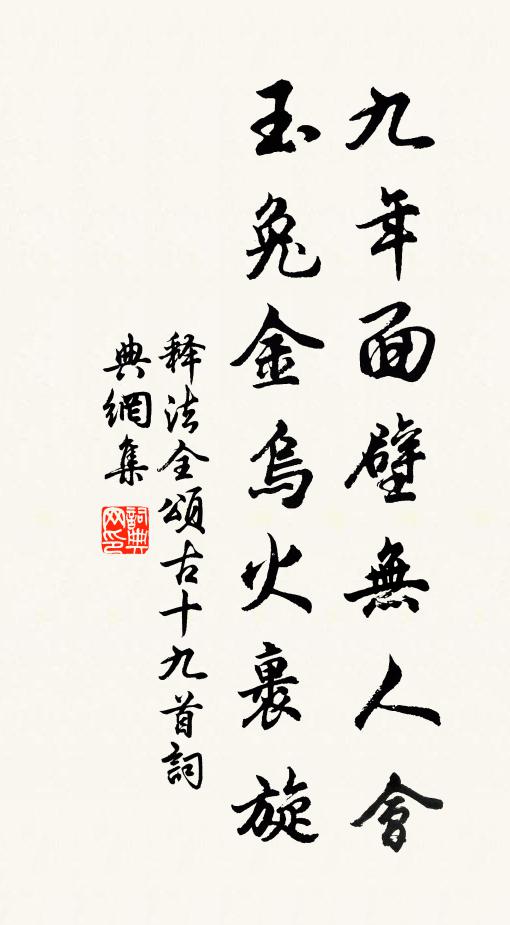 九年面壁無人會
玉兔金烏火裹旋
释法全頌古十九首詞
典網集
詞典网印